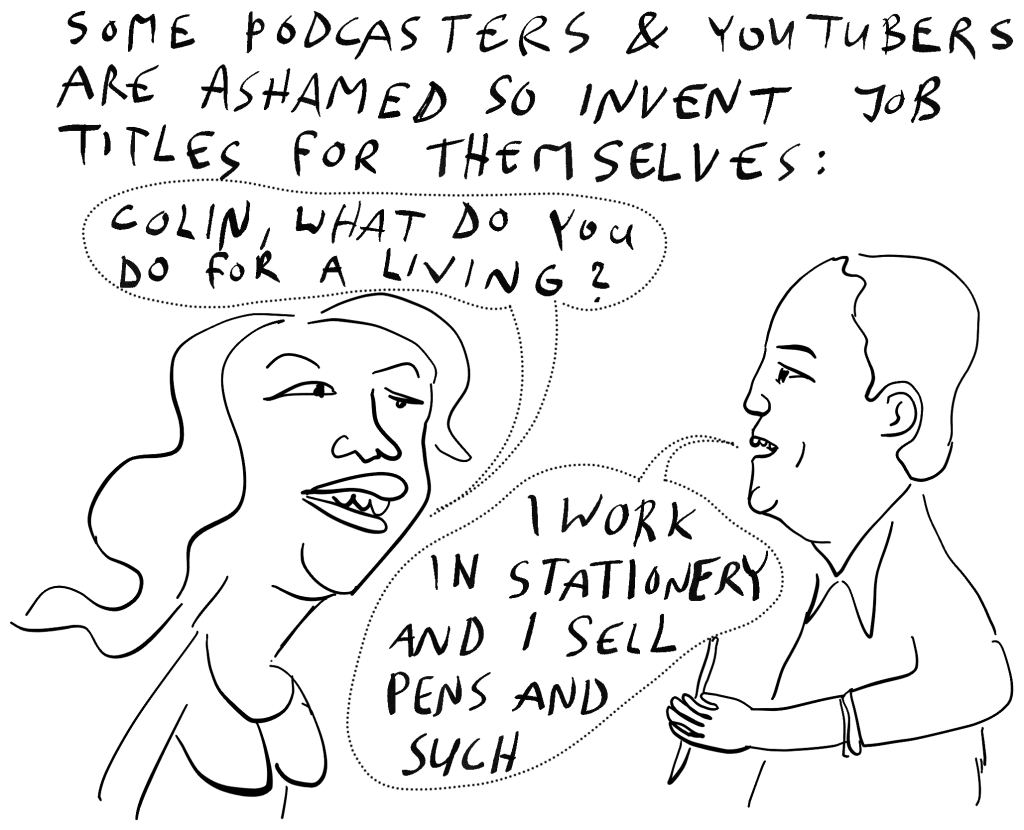 SOME PODCASTERS & YOUTUBERS
ARE ASHAMED SO INVENT JOB
TITLES FOR THEMSELVES:
COLIN, WHAT DO YOU
DO FOR A LIVING?
I WORK
IN STATIONERY
AND I SELL
PENS AND
SUCH